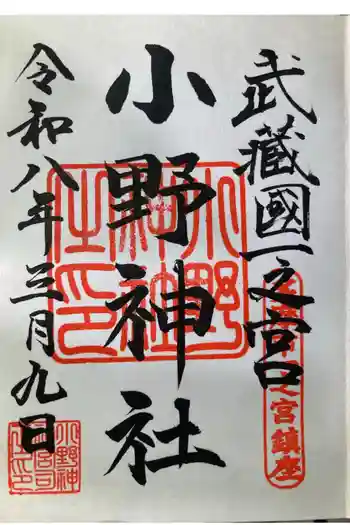 武藏國一之宮
小野神社
令和八年三月九日
小野神社之印
之宮鎮座
小野神社宮司之印